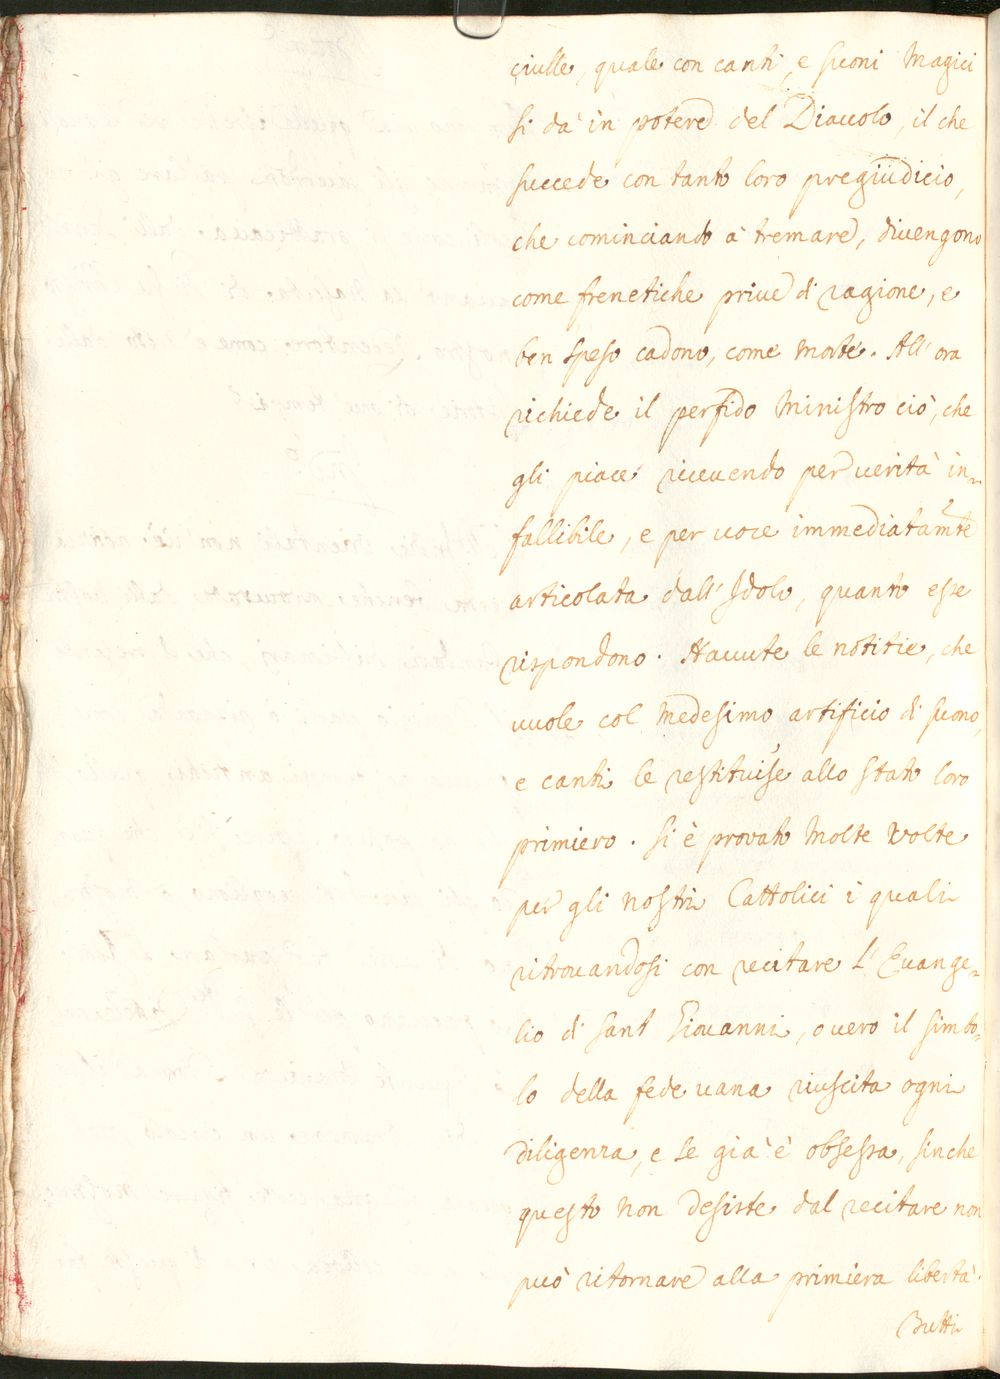 ciulle, quale con canti, e suoni Magici
si dà in potere del Diavolo, il che
succede con tanto loro pregiudicio,
che cominciando à tremare, divengono
come frenetiche prive di ragione, e
ben speso cadono, come morte. All' ora
richiede il perfido Ministro ciò, che
gli piace ricevendo per verità in-
fallibile, e per voce immediatamte
articolata dall' Idolo, quanto esse
rispondono. Havute le notitie, che
vuole col medesimo artificio di suono,
e canti le restituise allo stato loro
primiero. Si è provato molte volte
per gli nostri Cattolici i quali
ritrovandosi con recitare L' Evange-
lio di Sant Giovanni, overo il simbo-
lo della fede vana riuscita ogni
diligenza, e se già è obsessa, sinche
questo non desiste dal recitare non
può ritornare alla primiera libertà.
Butti